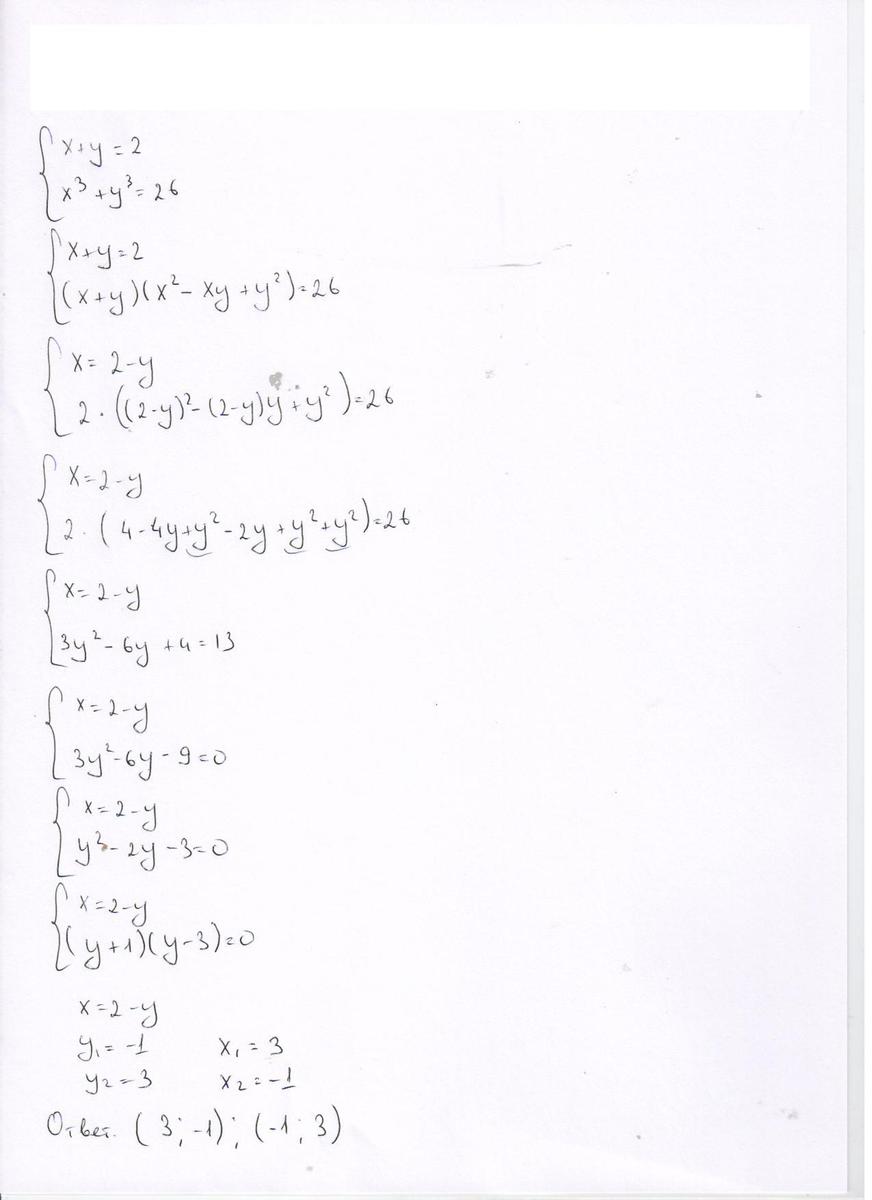 x+y=2
x³+y³=26
x+y=2
(x+y)(x²-xy+y²)=26
x=2-y
2·((2-y)²-(2-y)y+y²)=26
x=2-y
2·(4-4y+y²-2y+y²+y²)=26
x=2-y
3y²-6y+4=13
x=2-y
3y²-6y-9=0
x=2-y
y²-2y-3=0
x=2-y
(y+1)(y-3)=0
x=2-y
y₁=-1 x₁=3
y₂=3 x₂=-1
Ответ. (3;-1);(-1;3)